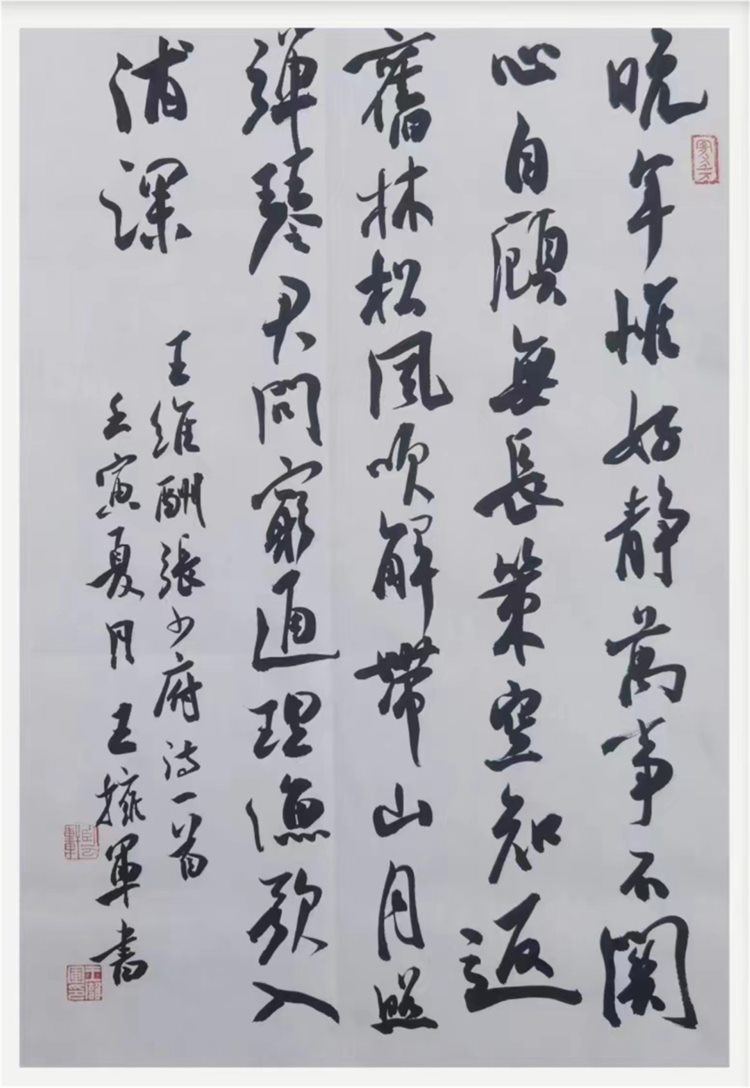 晚年惟好静萬事不關
心自顧無長策空知返
舊林松風吹解帶山月照
彈琴君問窮通理漁歌入
浦深
王維酬張少府詩一首
壬寅夏月王擁軍書